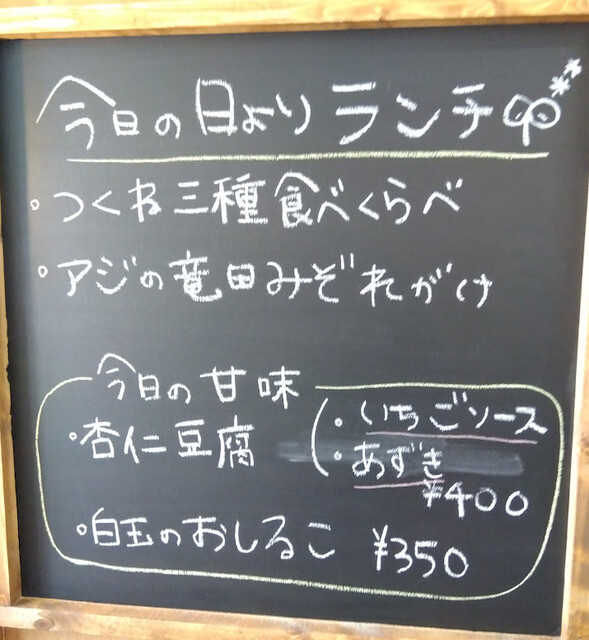 今日の日よりランチ
・つくね三種食べくらべ
・アジの竜田みぞれがけ
今日の甘味
・杏仁豆腐
(・いちごソース
・あずき
¥400
・白玉のおしるこ ¥350